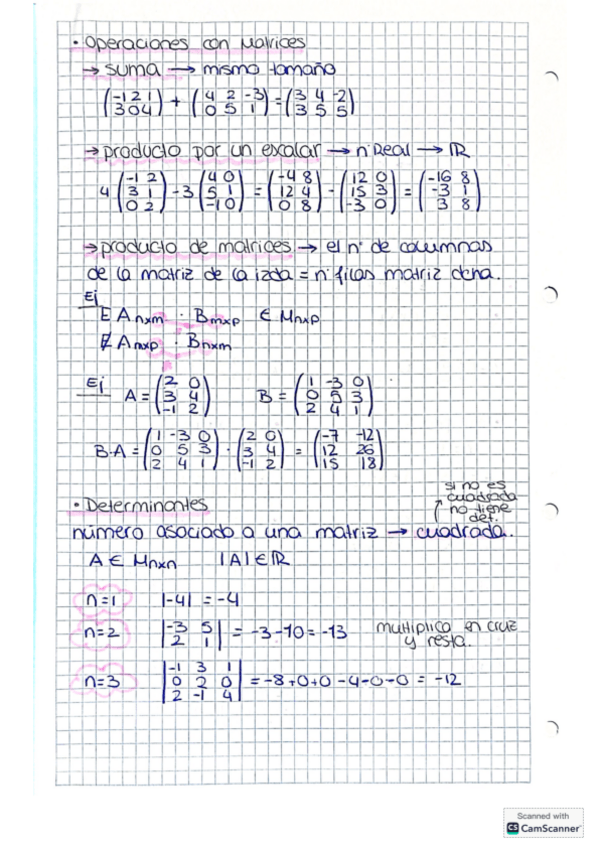 · Operaciones con Matrices
→ suma → mismo tamaño
(-1 2 1 / 3 0 4) + (4 2 -3 / 0 5 1) = (3 4 -2 / 3 5 5)
→ producto por un escalar → nº Real → ℝ
4 (-1 2 / 3 1 / 0 2) - 3 (4 0 / 5 1 / -1 0) = (-4 8 / 12 4 / 0 8) - (12 0 / 15 3 / -3 0) = (-16 8 / -3 1 / 3 8)
→ producto de matrices → el nº de columnas
de la matriz de la izda = nº filas matriz dcha.
Ej
∃ Anxm · Bmxp ∈ Mnxp
∄ Amxp · Bnxm
Ej A = (2 0 / 3 4 / -1 2) B = (1 -3 0 / 0 5 3 / 2 4 1)
B·A = (1 -3 0 / 0 5 3 / 2 4 1) · (2 0 / 3 4 / -1 2) = (-7 -12 / 12 26 / 15 18)
si no es
cuadrada
no tiene
det.
· Determinantes
número asociado a una matriz → cuadrada.
A ∈ Mnxn |A| ∈ ℝ
n=1 |-4| = -4
n=2 |-3 5 / 2 1| = -3-10 = -13 multiplico en cruz
y resta.
n=3 |-1 3 1 / 0 2 0 / 2 -1 4| = -8+0+0-4-0-0 = -12
Scanned with
CS CamScanner